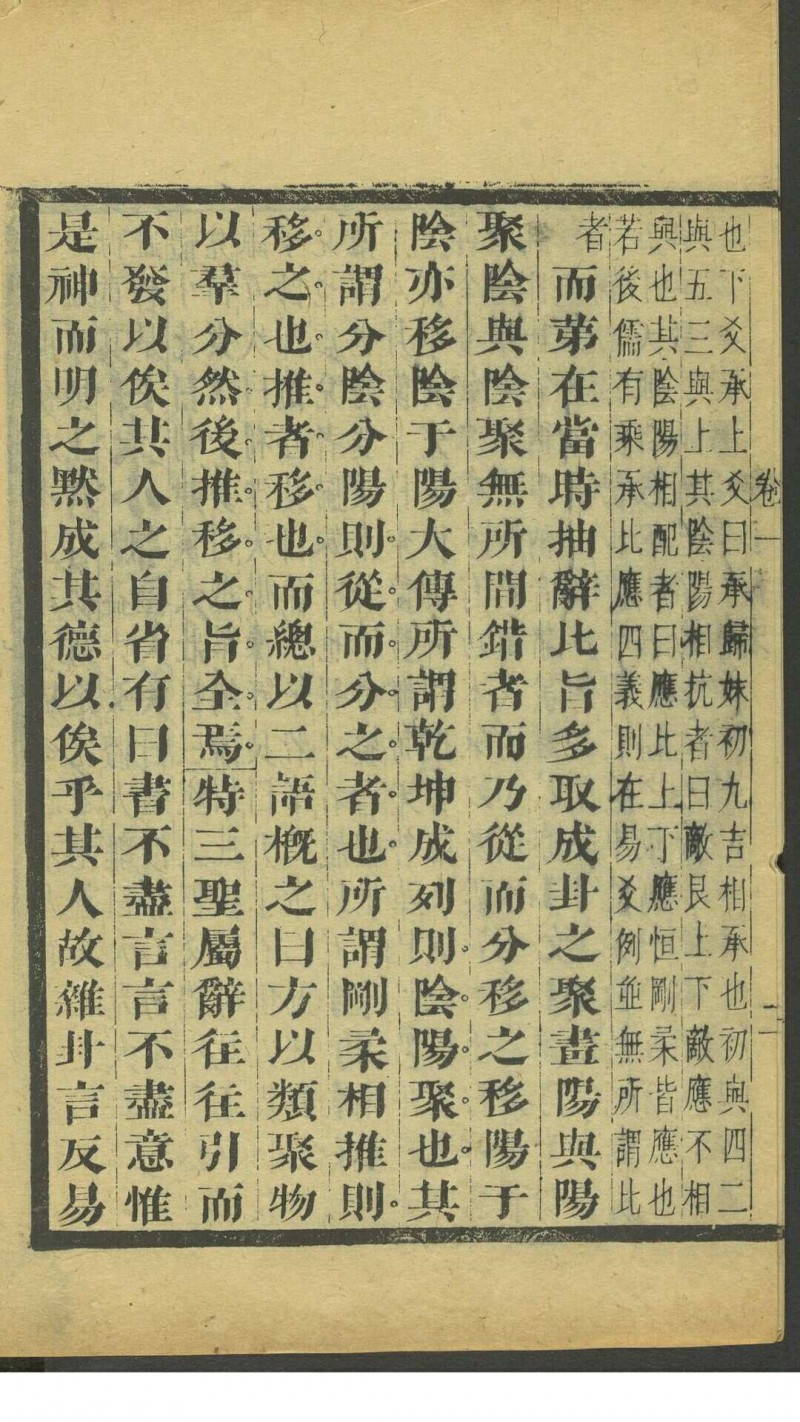 卷一
二
也下爻承上爻曰承歸妹初九吉相承也初與四二
與五三與上其陰陽相抗者曰敵艮上下敵應不相
與也其陰陽相配者曰應比上下應恒剛柔皆應也
若後儒有乘承比應四義則在易爻例並無所謂比
者
而第在當時抽辭比旨多取成卦之聚畫陽與陽
聚陰與陰聚無所間錯者而乃從而分移之移陽于
陰亦移陰于陽大傳所謂乾坤成列則陰陽聚也其
所謂分陰分陽則從而分之者也所謂剛柔相推則
移之也推者移也而總以二語概之曰方以類聚物
以羣分然後推移之旨全焉特三聖屬辭往往引而
不發以俟其人之自省有曰書不盡言言不盡意惟
是神而明之默成其德以俟乎其人故雜卦言反易